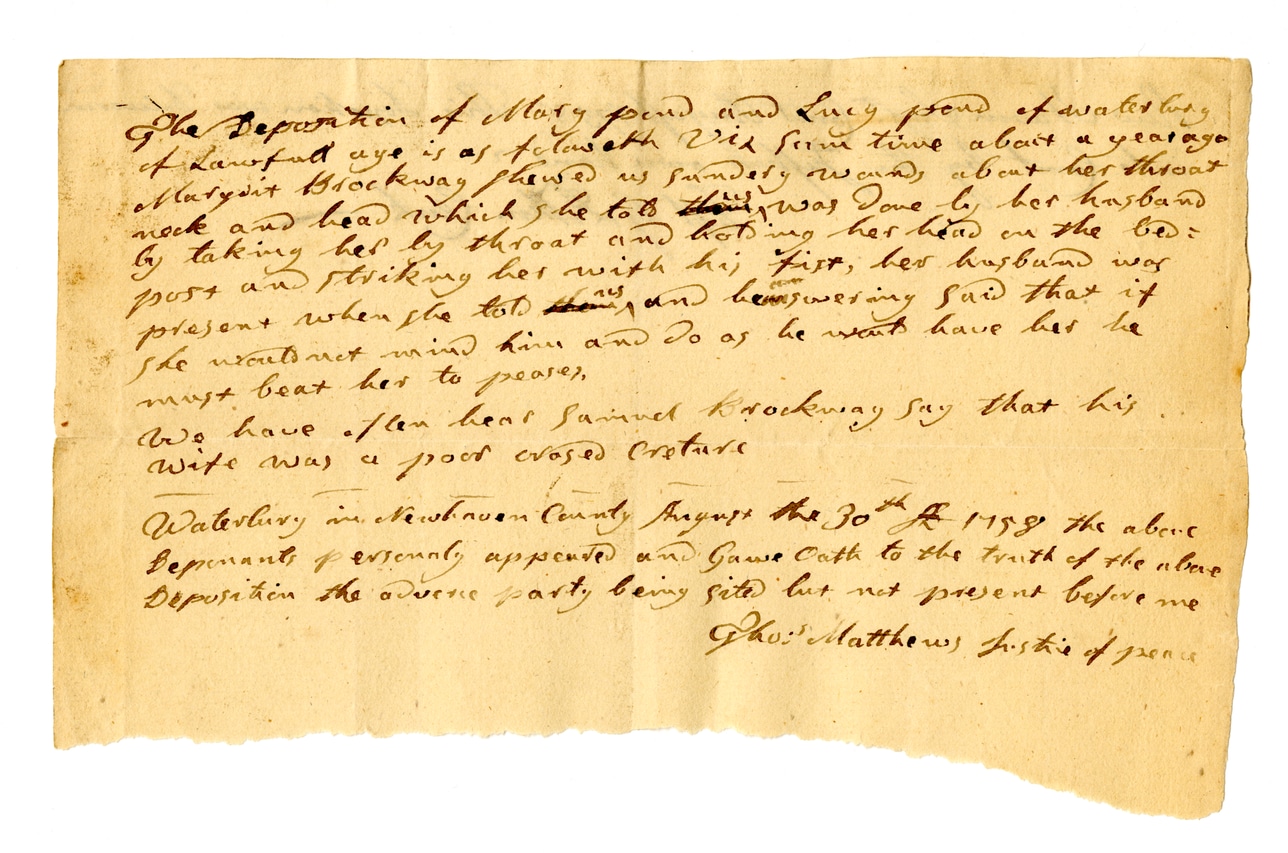 The Deposition of Mary pond and Lucy pond of waterbury
of Lawfull age is as foloweth Viz sum time about a year ago
Margrit Brockway shewed us sundery wounds about her throat
neck and head which she told them us was Done by her husband
by taking her by throat and holding her head on the bed=
post and striking her with his fist, her husband was
present when she told them us and he answering said that if
she would not mind him and do as he would have her he
must beat her to peases,
We have often hear Samuel Brockway say that his
wife was a poor crased Creture
Waterbury in Newhaven County August the 30th 1758 the above
Deponants personaly appeared and Gave Oath to the truth of the above
Deposition the adverce party being sited but not present before me
Thos Matthews Justice of peace